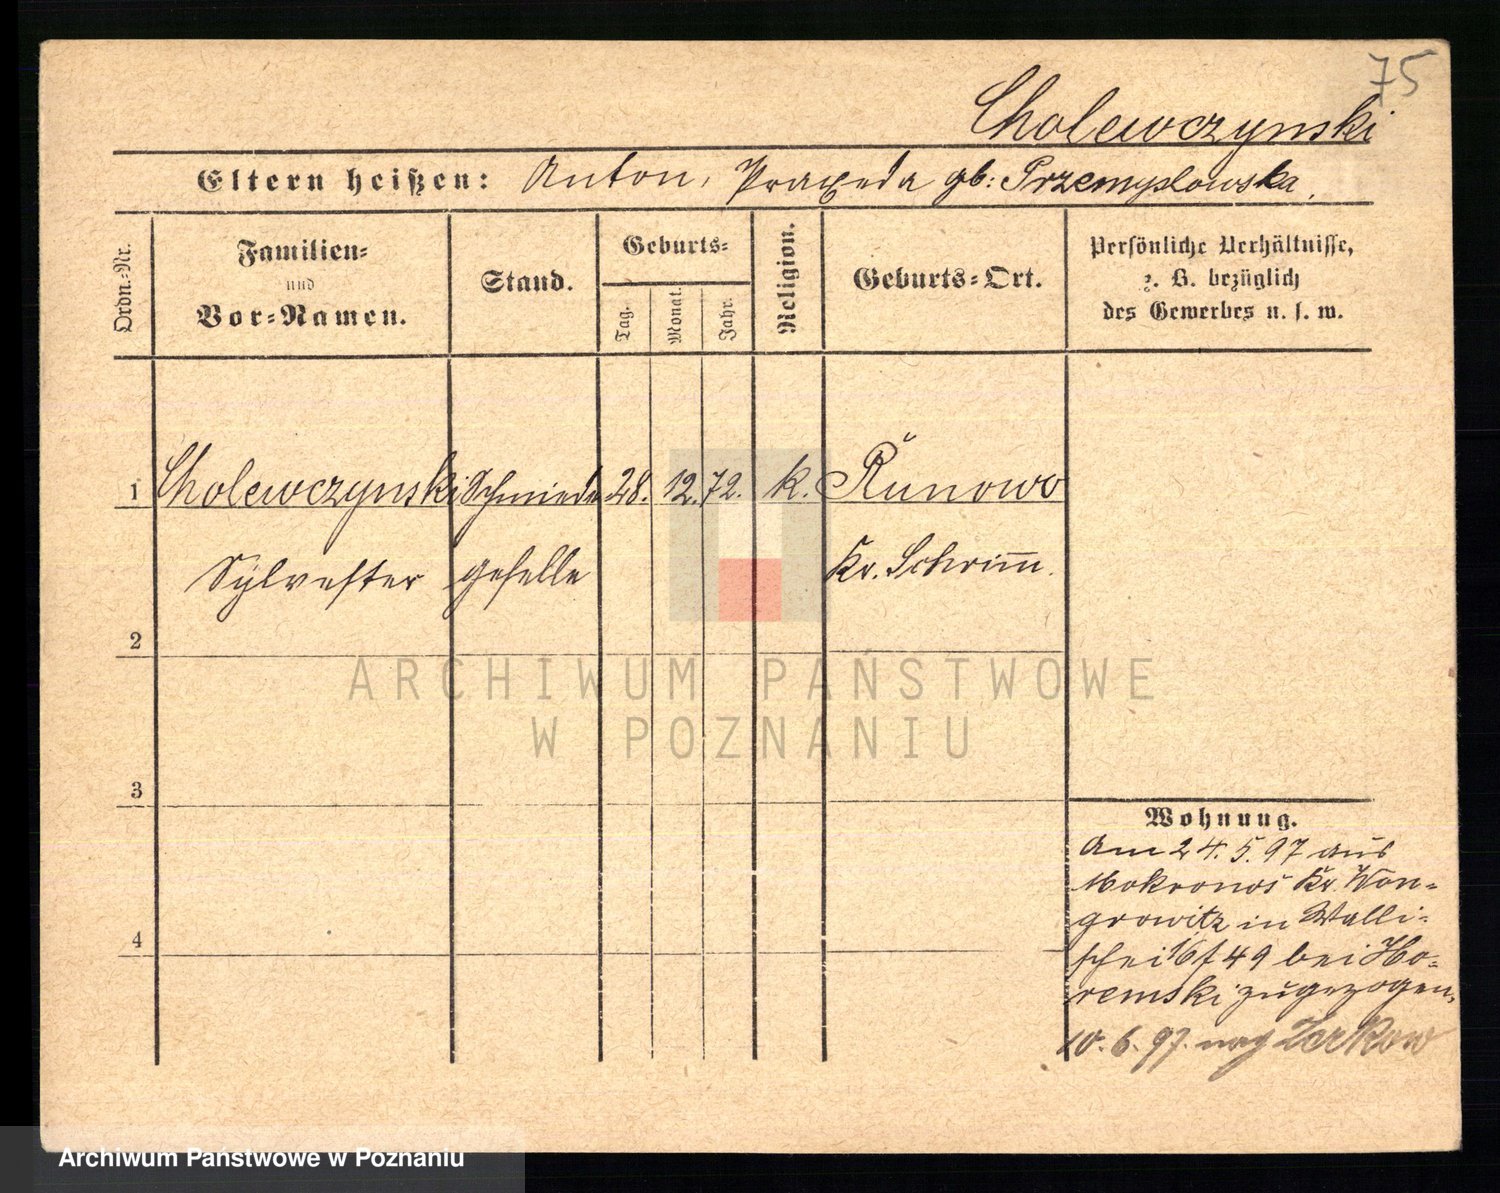 75
Cholewczynski
Eltern heißen: Anton, Praxeda gb: Przemyslowska.
Ordn.-Nr.
Familien-
und
Vor-Namen.
Stand.
Geburts-
Tag.
Monat.
Jahr.
Religion.
Geburts-Ort.
Persönliche Verhältnisse,
z. B. bezüglich
des Gewerbes u. s. w.
1 Cholewczynski Schmiede 28. 12. 72. k. Runowo
Sylvester geselle Kr. Schrimm.
2
ARCHIWUM PAŃSTWOWE
W POZNANIU
3
Wohnung.
Am 24.5.97 aus
Mokronos Kr. Won-
growitz in Walli-
schei 16/49 bei Ho-
4
remski zugezogen,
10.6.97. nach
Archiwum Państwowe w Poznaniu